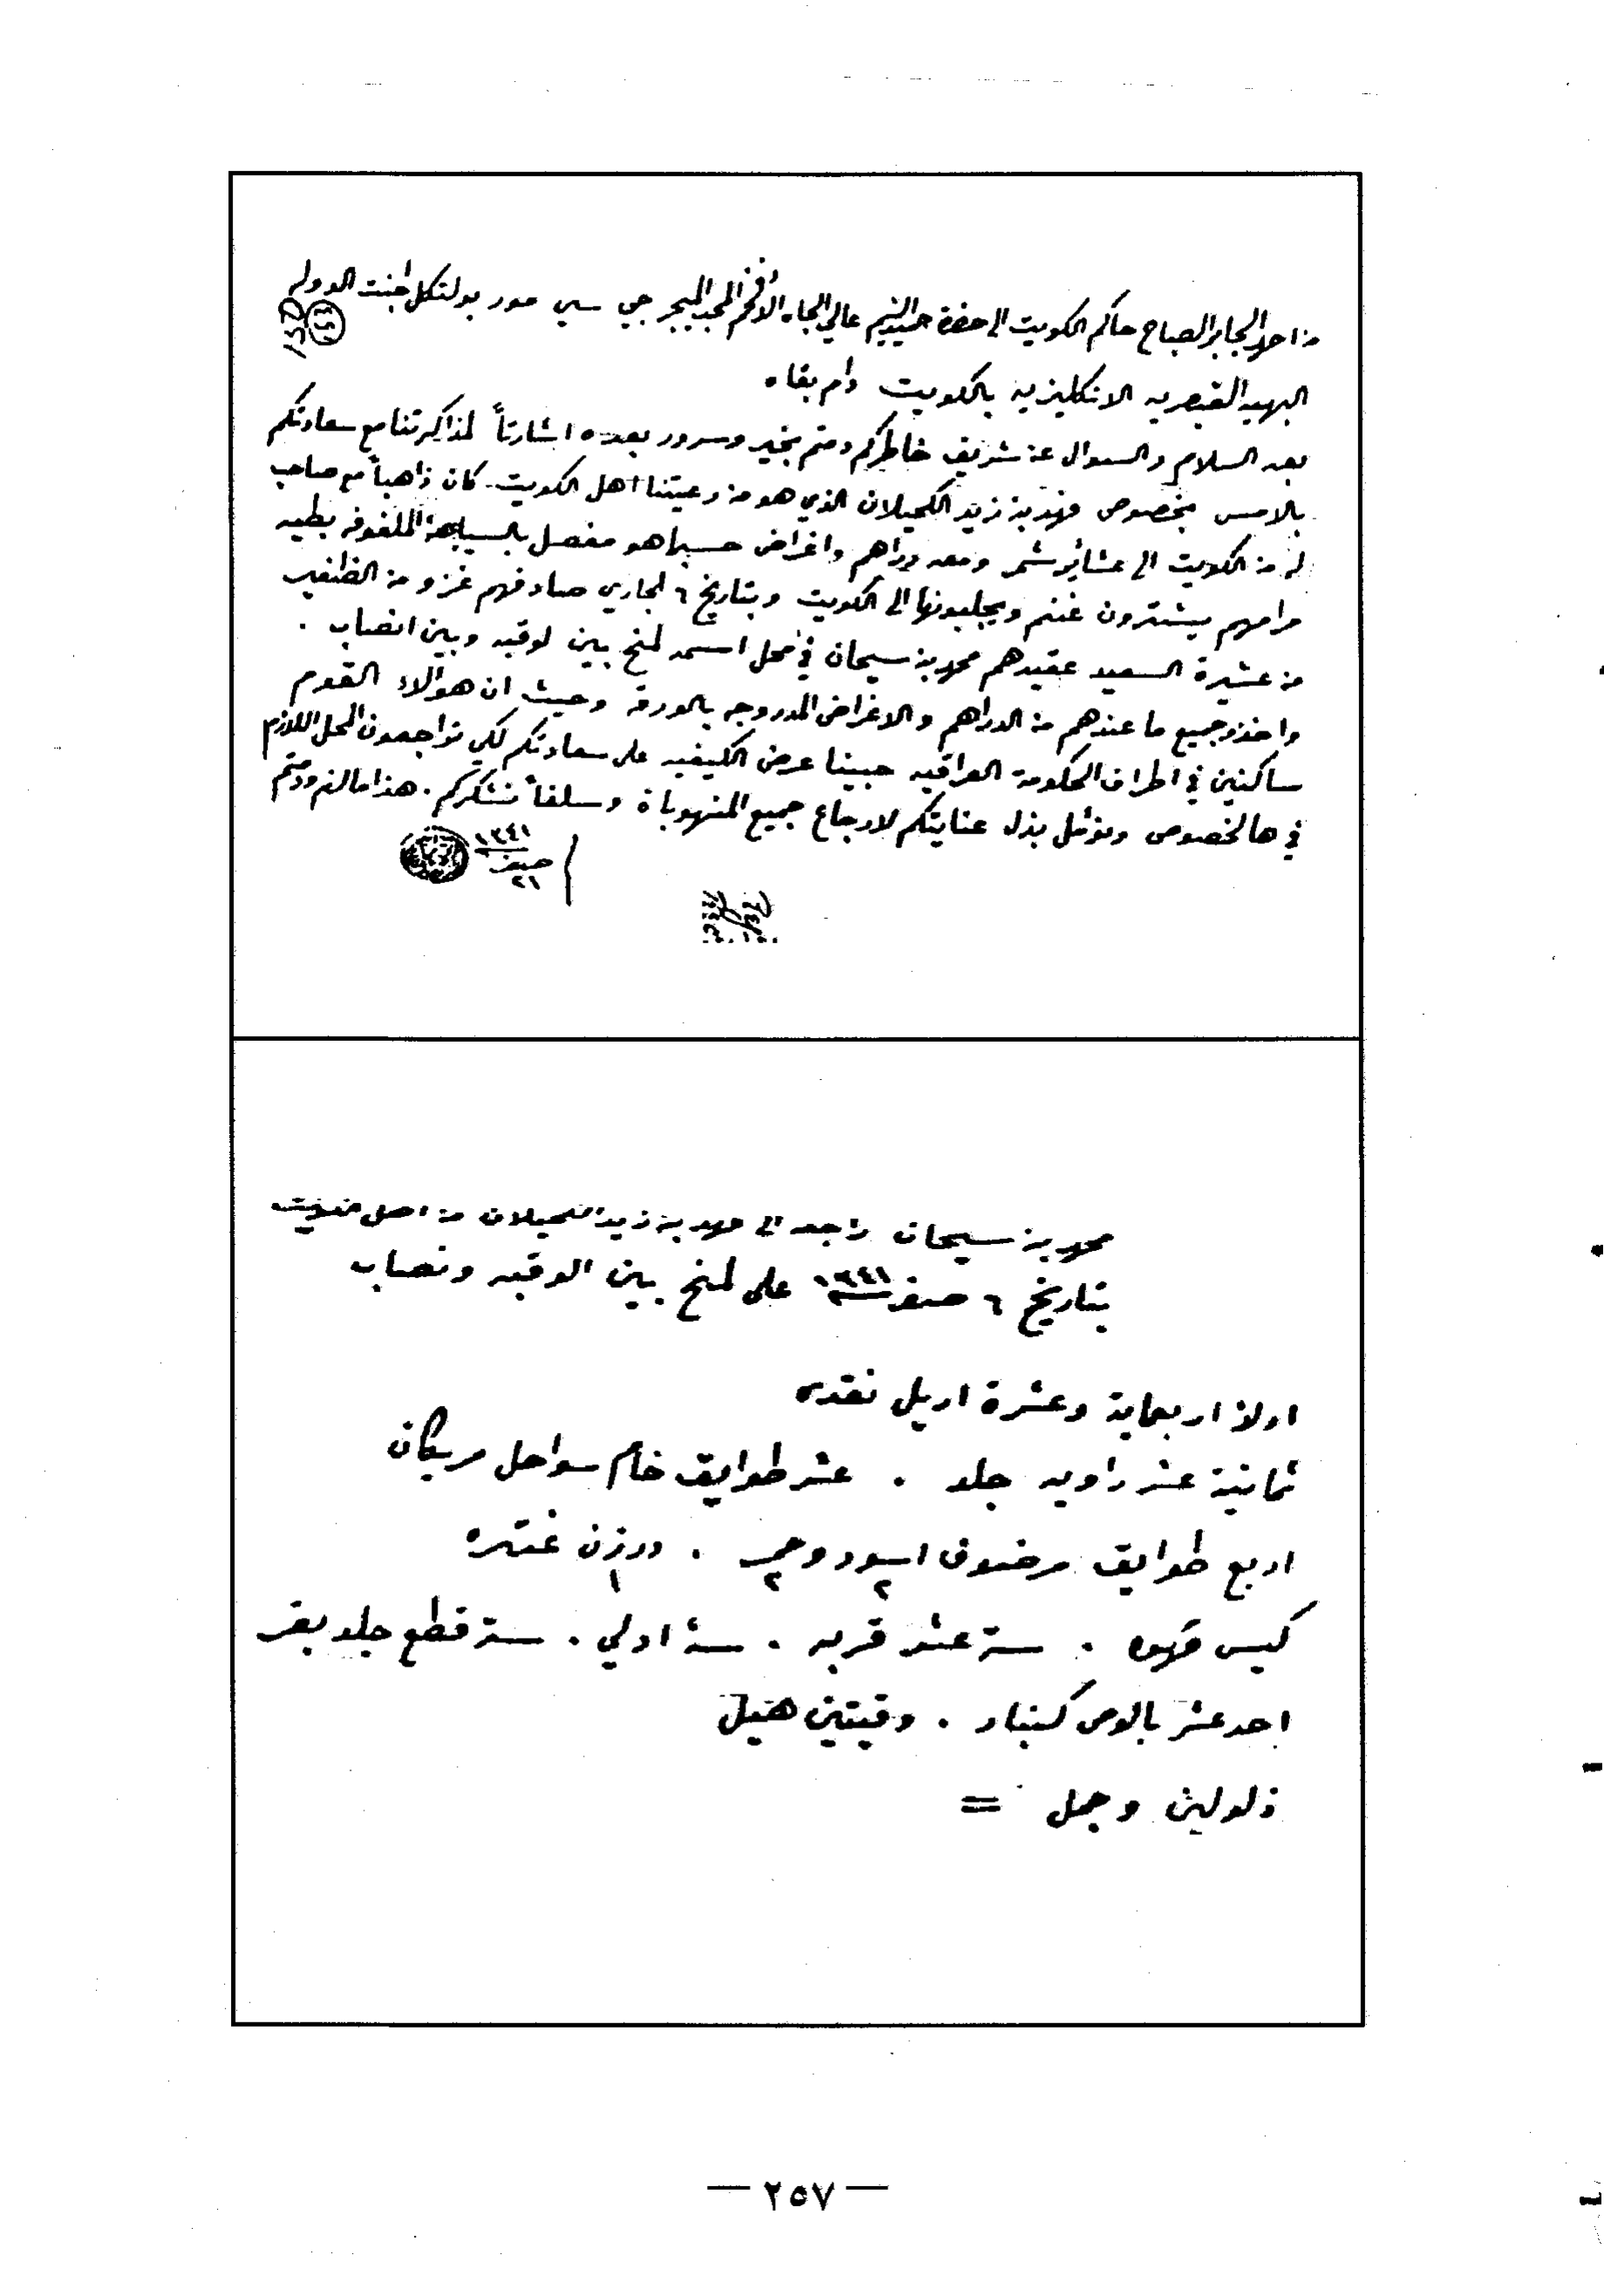 من احمد الجابر الصباح حاكم الكويت الى حضرة حميد الشيم عالي الجاه الافخم المحب الميجر جي سي مور بولتكل اجنت الدوله
البهيه القيصريه الانكليزيه بالكويت دام بقاه
بعد السلام والسوال عن شريف خاطركم دمتم بخير وسرور بعده اشارتاً لمذاكرتنا مع سعادتكم
بالامس بخصوص فهد بن زيد الكحيلان الذي هو من رعيتنا اهل الكويت كان ذاهباً مع صاحب
له من الكويت الى عشائر شمر ومعه دراهم واغراض حسبما هو مفصل بالسياهة الملفوفه بطيه
مرامهم يشترون غنم ويجلبونها الى الكويت وبتاريخ ٦ الجاري صادفهم غزو من الظفير
من عشيرة السعيد عقيدهم محمد بن سيحان في محل اسمه لمنخ بين لوقبه وبين انصاب .
واخذو جميع ما عندهم من الدراهم والاغراض المدروجه بالورقه وحيث ان هوالاء القوم
ساكنين في اطراف الحكومة العراقيه حبينا عرض الكيفيه على سعادتكم لكي تراجعون المحل اللازم
في هالخصوص ونؤمل بذل عنايتكم لارجاع جميع المنهوباة وسلفاً نتشكركم . هذا ما لزم ودمتم
٢١ صفر ١٣٤١
محمد بن سيحان راجعه الى فهد بن زيد الكحيلان من اهل الكويت
بتاريخ ٦ صفر ١٣٤١ على لمنخ بين الوقبه ونصاب
اولاً اربعماية وعشرة اريل نقديه
ثمانية عشر راويه جلد . عشر طوايق خام سواحل مريكان
اربع طوايق مرضوف اسود وحمر . درزن غتره
٢ ٢ ١
كيس قهوه . ستة عشر قربه . ستة ادلي . ستة قطع جلد بقر
احد عشر بالوص كنبار . وقيتين هيل
ذلولين وجمل =
— ٢٥٧ —